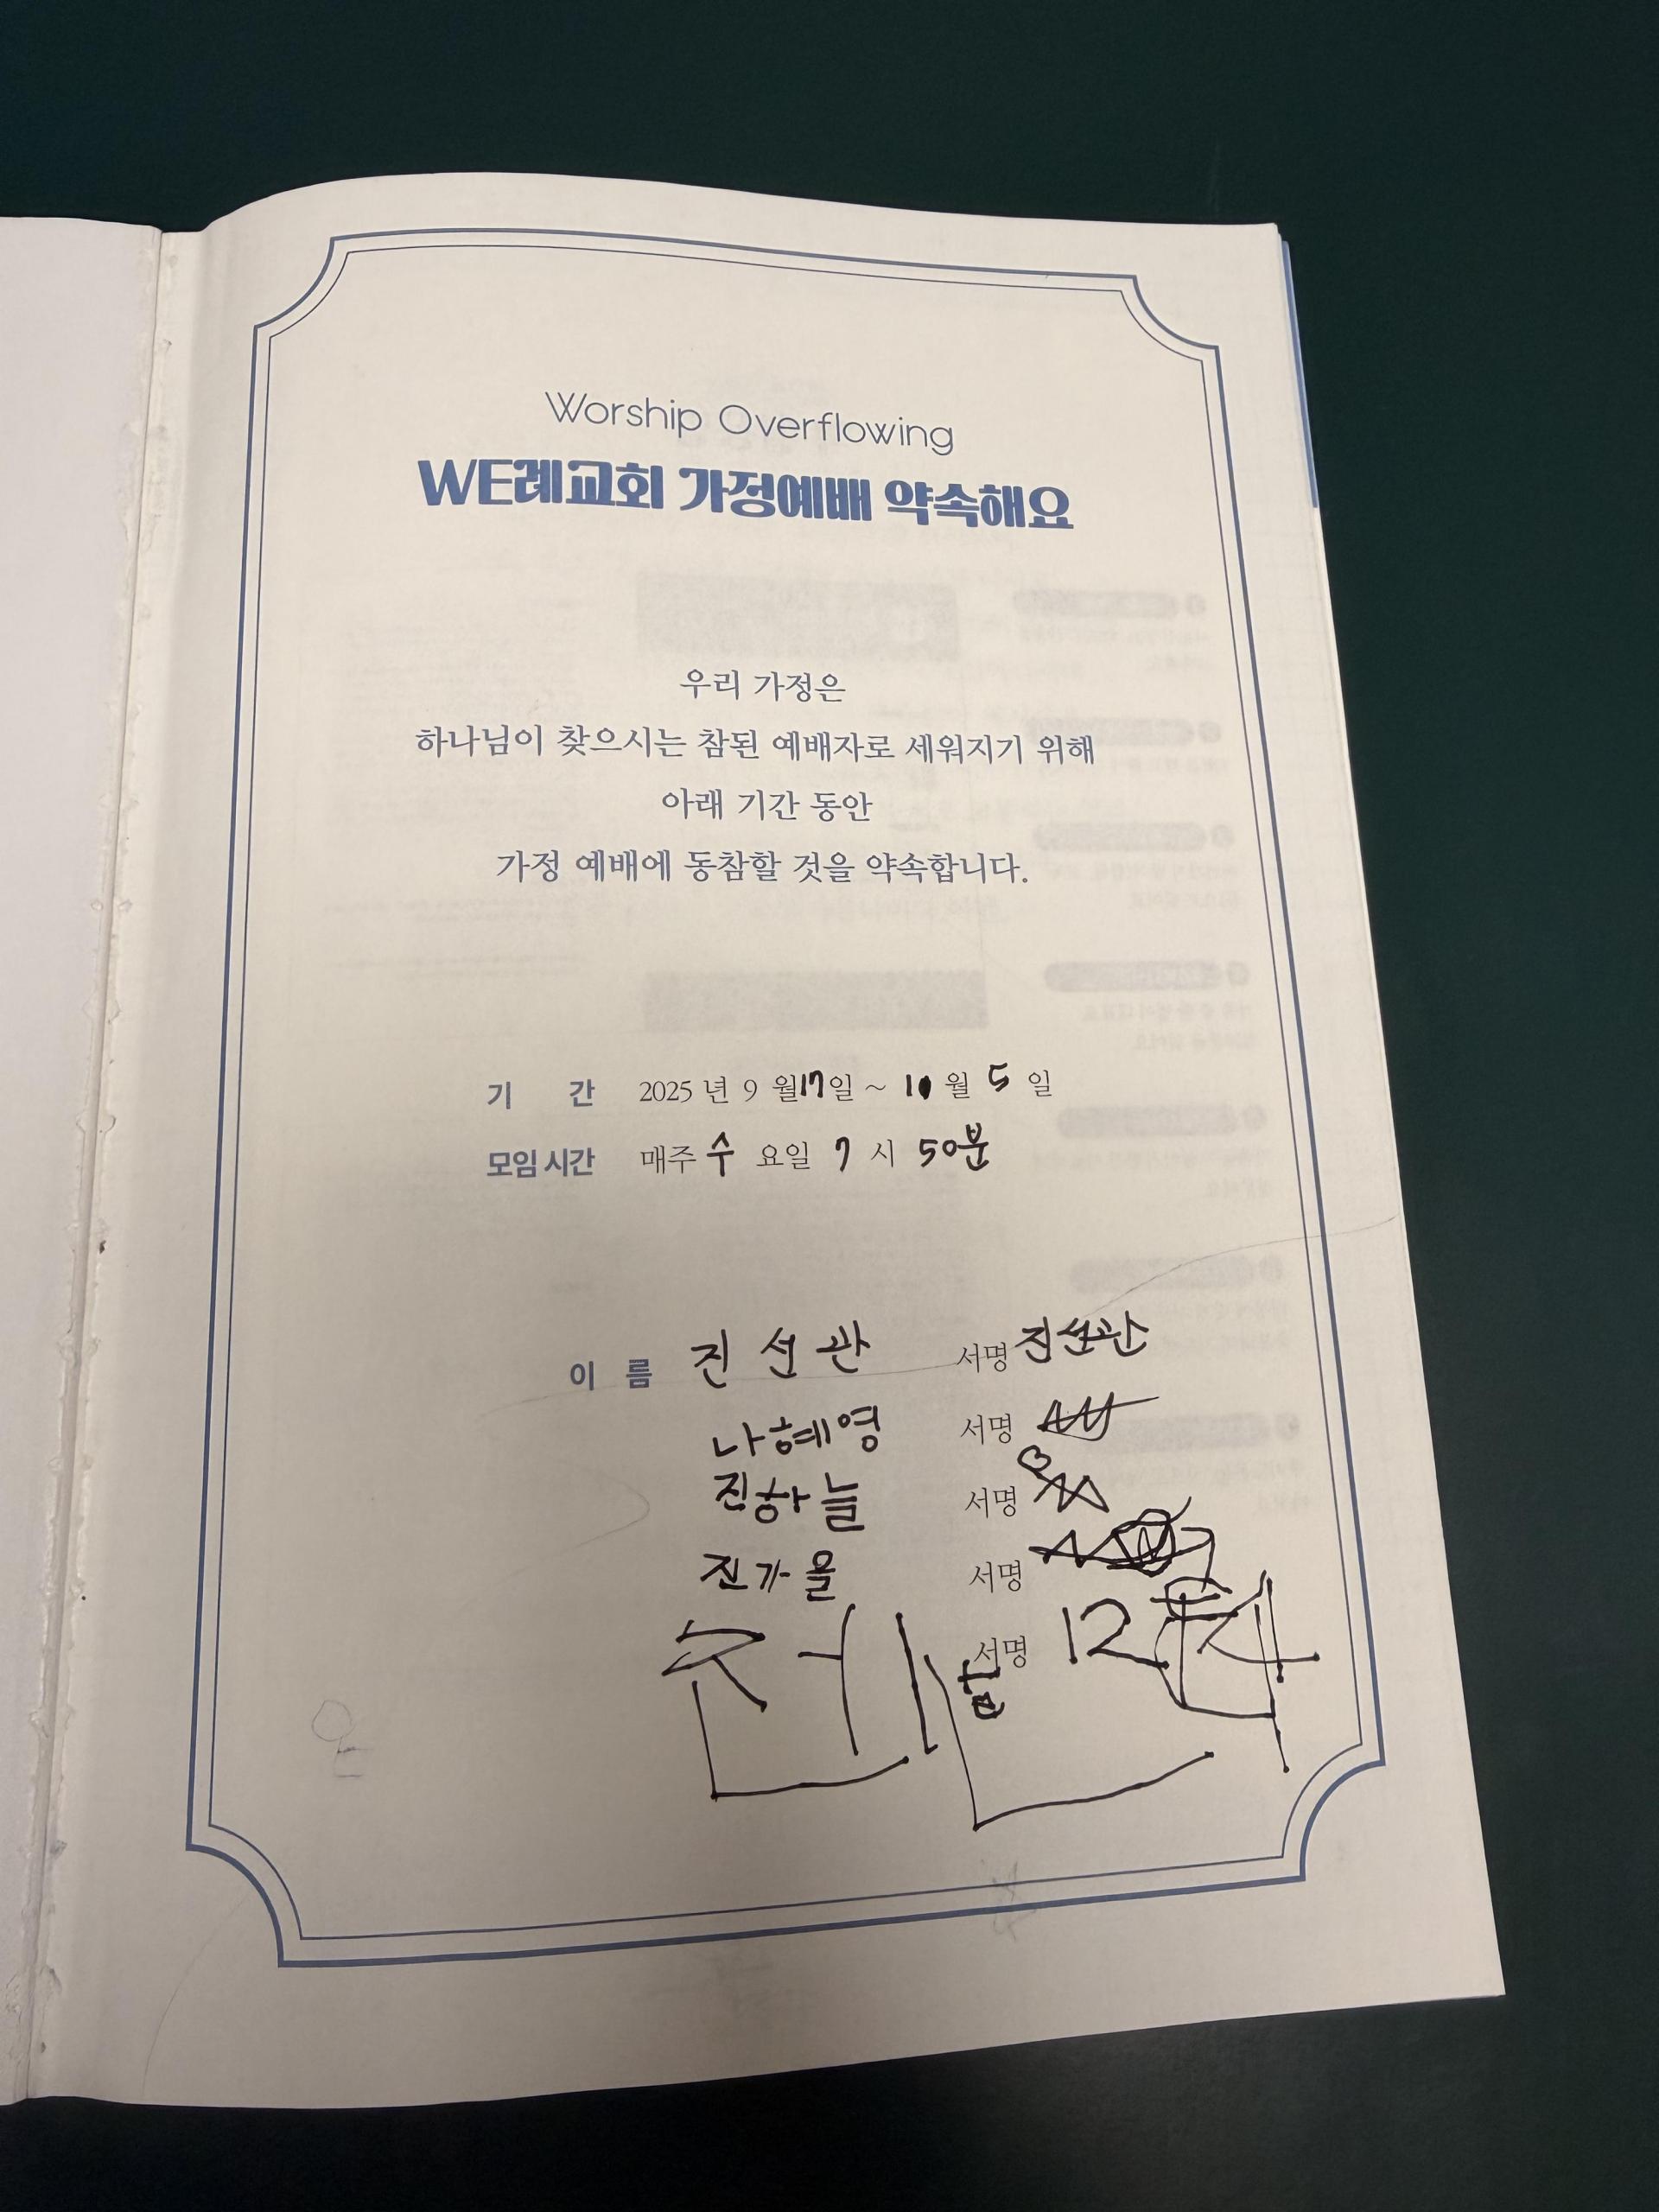 Worship Overflowing
WE례교회 가정예배 약속해요
우리 가정은
하나님이 찾으시는 참된 예배자로 세워지기 위해
아래 기간 동안
가정 예배에 동참할 것을 약속합니다.
기 간 2025 년 9 월 17일 ~ 10 월 5 일
모임 시간 매주 수 요일 7 시 50분
이 름 진 선 관 서명 진선관
나혜영 서명
진하늘 서명
진가을 서명
서명 12